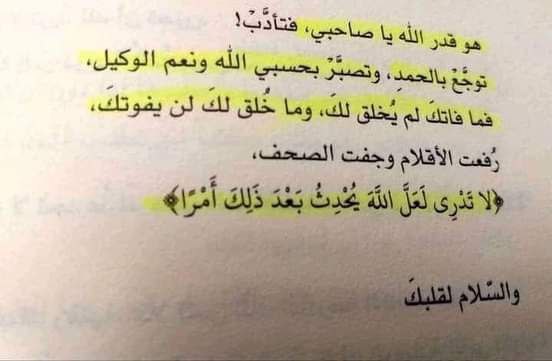 هو قدر الله يا صاحبي، فتأدَّبْ!
توجَّعْ بالحمدِ، وتصبَّرْ بحسبي الله ونعم الوكيل،
فما فاتكَ لم يُخلق لكَ، وما خُلق لكَ لن يفوتكَ،
رُفعت الأقلام وجفت الصحف،
﴿لَا تَدْرِى لَعَلَّ اللَّهَ يُحْدِثُ بَعْدَ ذَلِكَ أَمْرًا﴾
والسّلام لقلبكَ